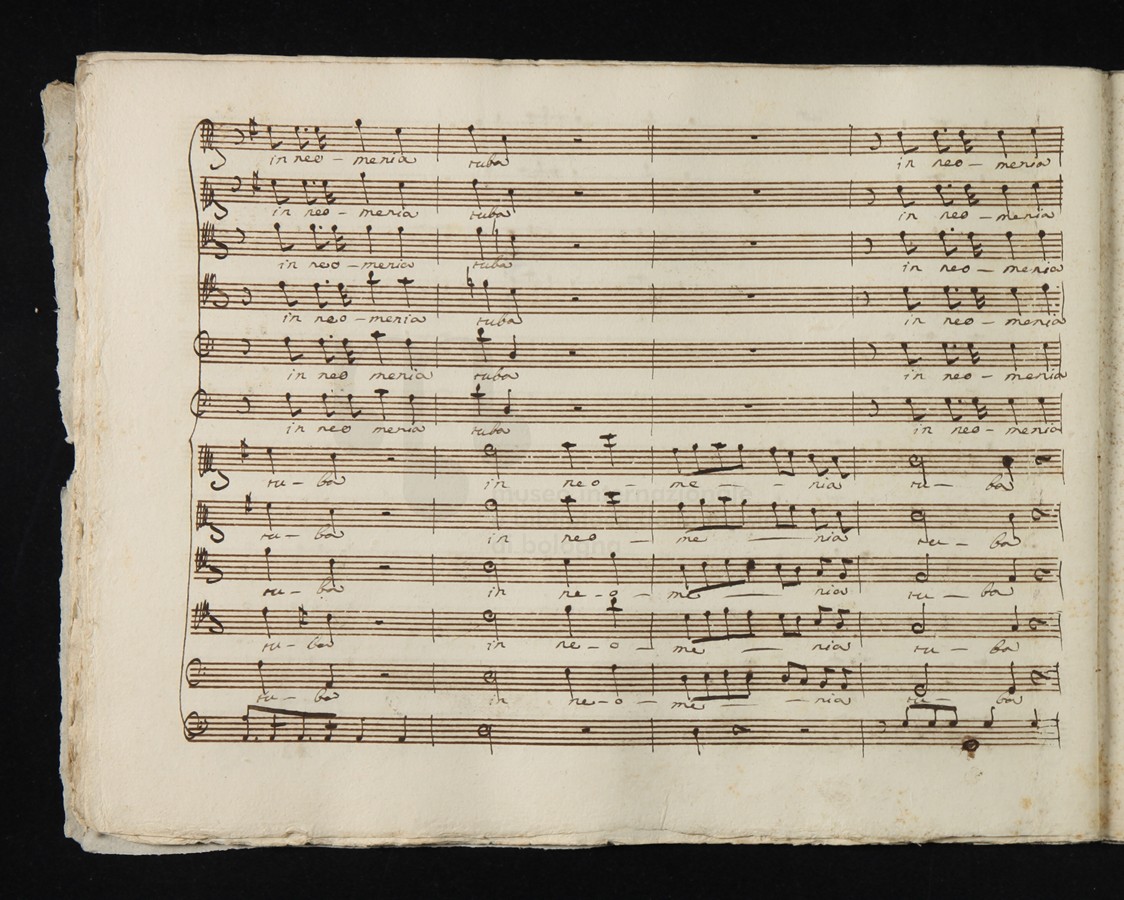 in neo - menia tuba in neo - menia
in neo - menia tuba in neo - menia
in neo - menia tuba in neo - menia
in neo - menia tuba in neo - menia
in neo menia tuba in neo - menia
in neo menia tuba in neo - menia
tu - ba in neo - me - - nia tu - ba
museo internazionale
tu - ba in neo - me - nia tu - ba
di bologna
tu - ba in ne - o - me - nia tu - ba
tu - ba in ne - o - me - nia tu - ba
tu - ba in ne - o - me - - nia tu - ba